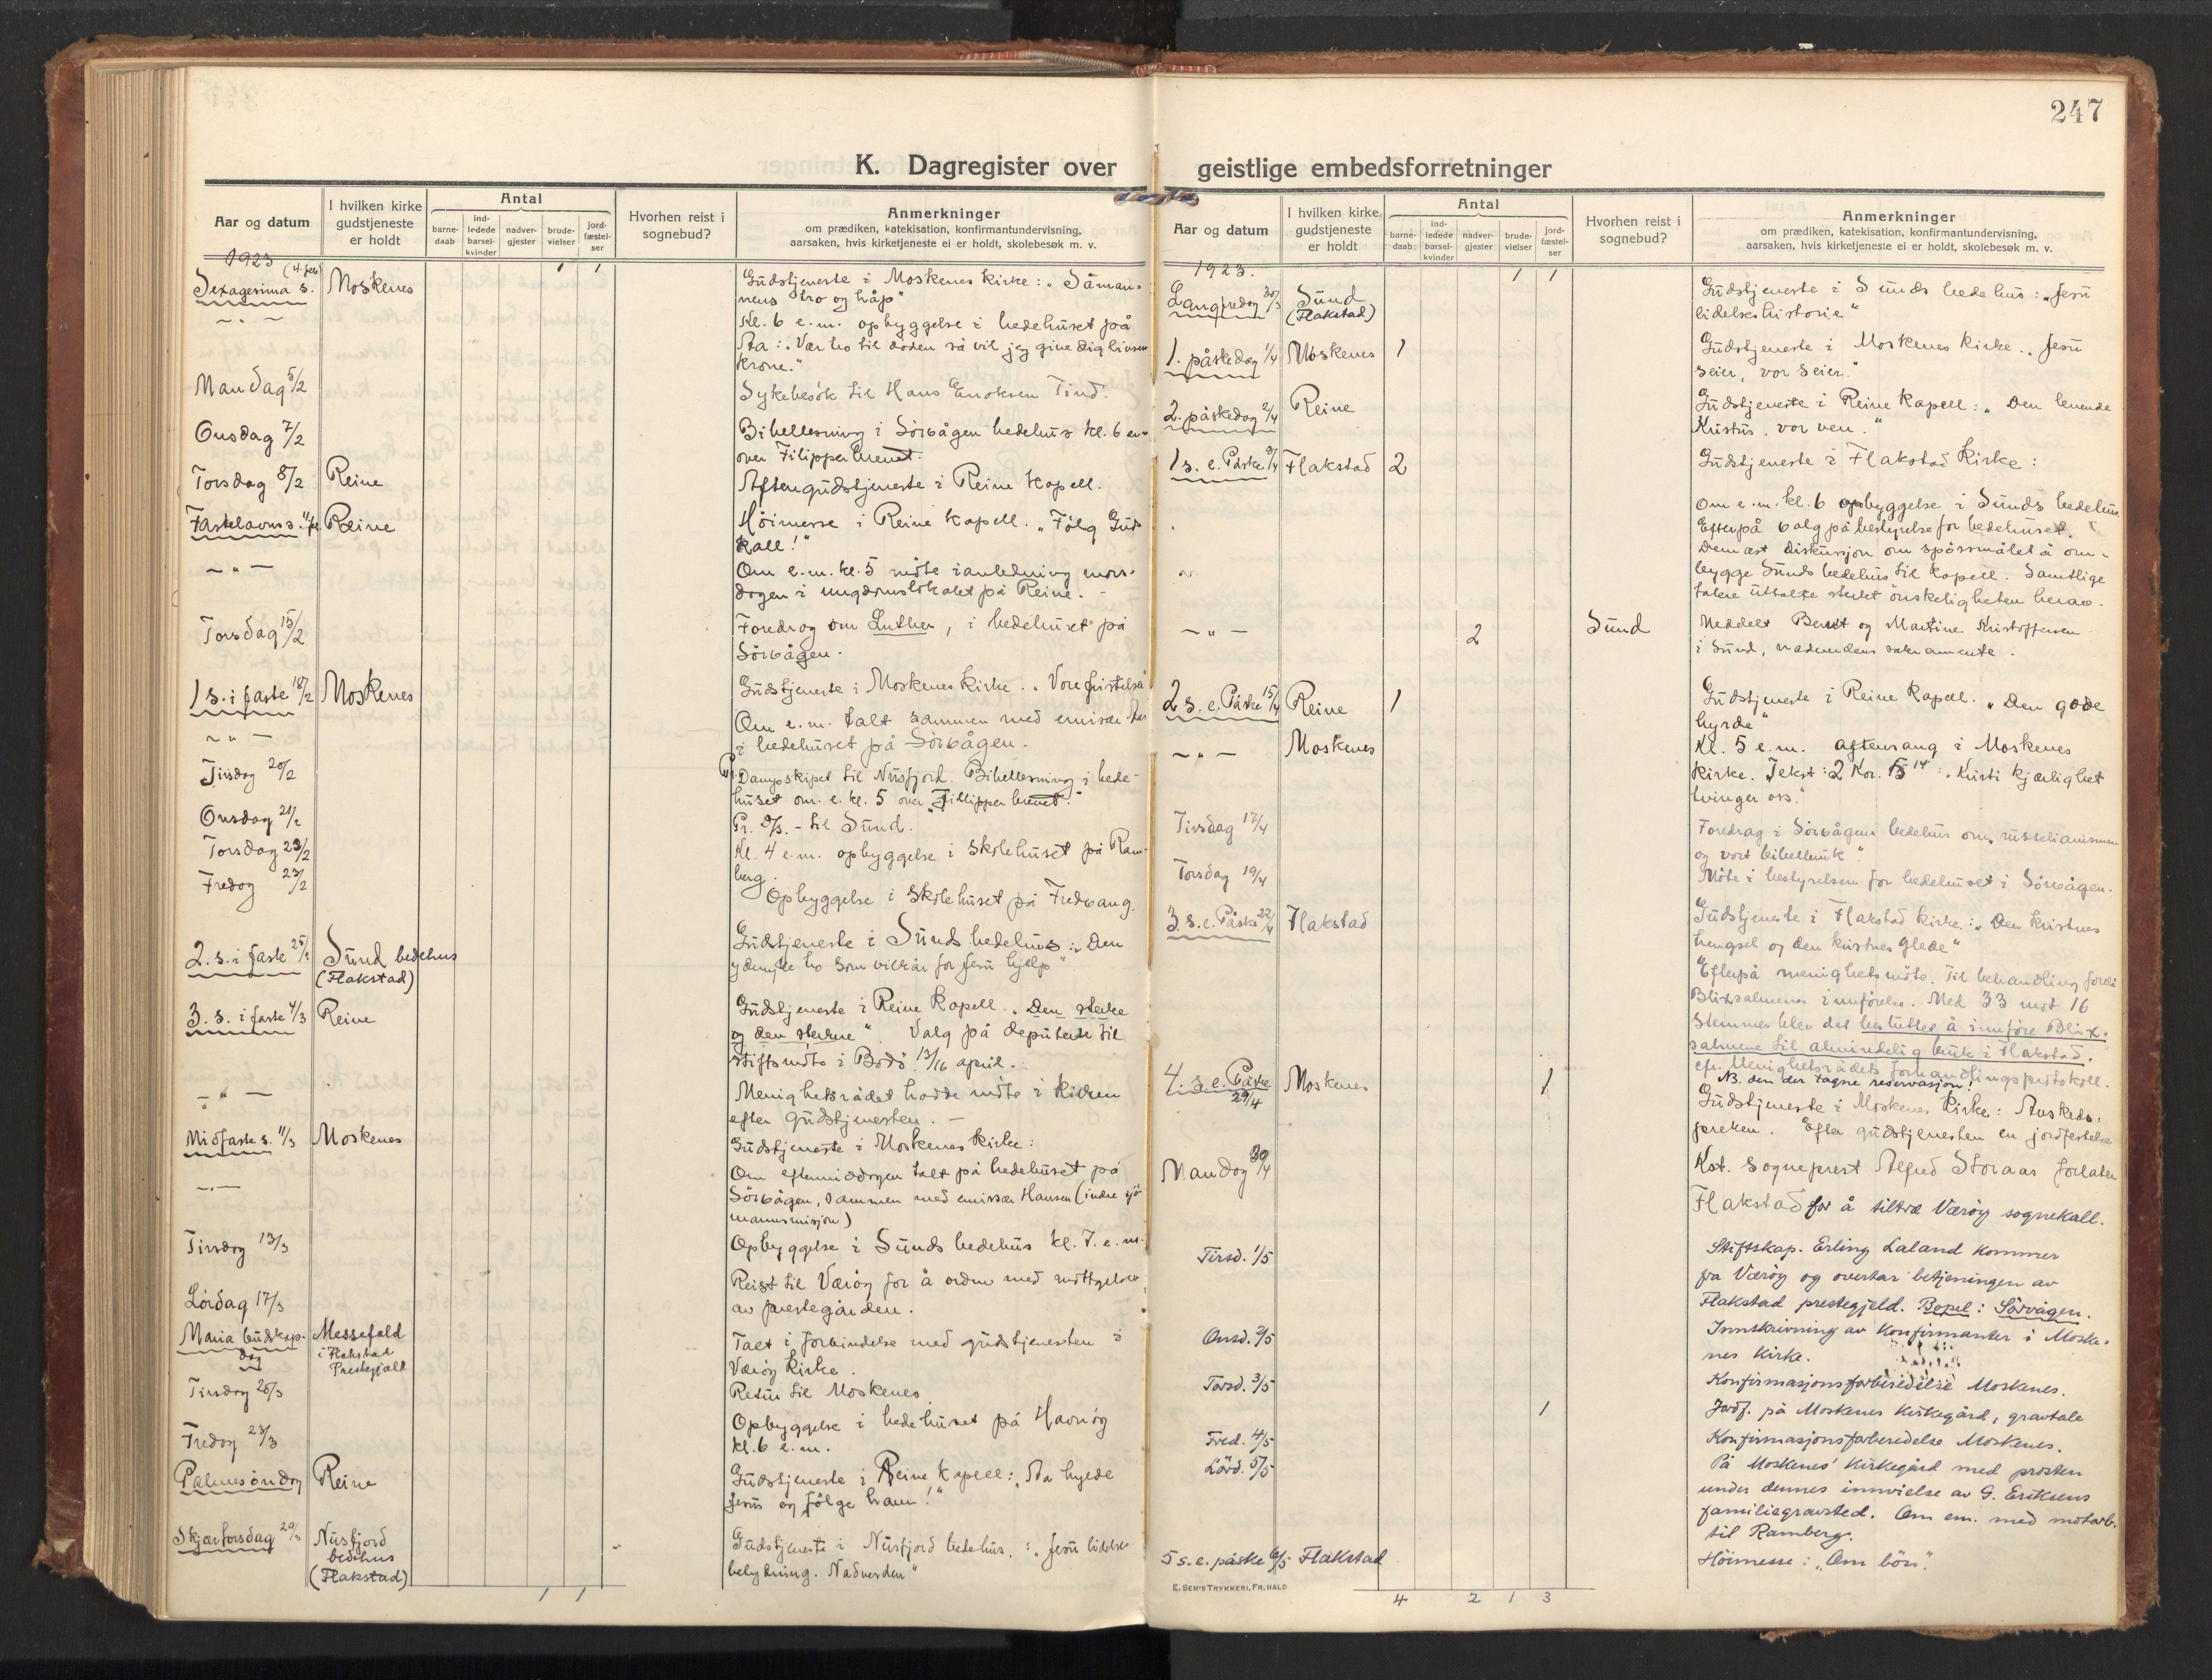 247
K. Dagregister over geistlige embedsforretninger
Aar og datum
I hvilken kirke gudstjeneste er holdt
Antal
barnedaab
indledede barselkvinder
nadvergjester
brudevielser
jordfæstelser
Hvorhen reist i sognebud?
Anmerkninger
om prædiken, katekisation, konfirmantundervisning,
aarsaken, hvis kirketjeneste ei er holdt, skolebesøk m. v.
1923 (4. feb) 1 1
Sexagesima s. Moskenes Gudstjeneste i Moskenes kirke: „Såman-
nens tro og håp"
— " — Kl. 6 e.m. opbyggelse i bedehuset på
Åa: „Vær tro til døden så vil jeg give dig livsens
krone."
Mandag 5/2 Sykebesøk til Hans Enoksen Tind.
Onsdag 7/2 Bibellesning i Sörvågen bedehus kl. 6 em
over Filipperbrevet.
Torsdag 8/2 Reine Aftengudstjeneste i Reine kapell.
Fastelavns s. 11/2 Reine Höimesse i Reine kapell. „Fölg Guds
kall!"
— " — Om e.m. kl. 5 möte i anledning mors-
dagen i ungdomslokalet på Reine.
Torsdag 15/2 Foredrag om Luther, i bedehuset på
Sörvågen.
1 s. i faste 18/2 Moskenes Gudstjeneste i Moskenes kirke. „Vore fristelser
— " — Om e.m. talt sammen med emissær
i bedehuset på Sörvågen.
Tirsdag 20/2 Pr. Dampskipet til Nusfjord. Bibellesning i bede-
huset om. e. kl. 5 over „Fillipperbrevet."
Onsdag 21/2 Pr. D/S. - til Sund.
Torsdag 22/2 Kl. 4 e.m. opbyggelse i skolehuset på Ram-
berg.
Fredag 23/2 Opbyggelse i skolehuset på Fredvang.
2. s. i faste 25/2 Sund bedehus Gudstjeneste i Sunds bedehus: „Den
(Flakstad) ydmyke tro som vilkår for Jesu hjelp"
3. s. i faste 4/3 Reine Gudstjeneste i Reine kapell. „Den sterke
og den sterkere" Valg på deputerte til
stiftsmöte i Bodö 13/16 april.
— " — Menighetsrådet hadde möte i kirken
efter gudstjenesten. —
Midfaste s. 11/3 Moskenes Gudstjeneste i Moskenes kirke:
— " — Om eftermiddagen talt på bedehuset på
Sörvågen, sammen med emissær Hansen (indre sjö-
mannsmisjon)
Tirsdag 13/3 Opbyggelse i Sunds bedehus kl. 7. e.m.
Lördag 17/3 Reist til Værøy for å ordne med mottgelse
av prestegården.
Maria budskaps- Messefald Talt i forbindelse med gudstjenesten i
dag i Flakstad Prestegjeld Værøy kirke.
Tirsdag 20/3 Retur til Moskenes
Fredag 23/3 Opbyggelse i bedehuset på Havnöy
kl. 6 e.m.
Palmesöndag Reine Gudstjeneste i Reine kapell: „Å hylde
Jesus og fölge ham!"
Skjærtorsdag 29/3 Nusfjord bedehus Gudstjeneste i Nusfjord bedehus.: „Jesu lidelses
(Flakstad) betydning. Nadverden"
1 1
Aar og datum
I hvilken kirke gudstjeneste er holdt
Antal
barnedaab
indledede barselkvinder
nadvergjester
brudevielser
jordfæstelser
Hvorhen reist i sognebud?
Anmerkninger
om prædiken, katekisation, konfirmantundervisning,
aarsaken, hvis kirketjeneste ei er holdt, skolebesøk m. v.
1923. 1 1
Langfredag 30/3 Sund Gudstjeneste i Sunds bedehus: „Jesu
(Flakstad) lidelseshistorie"
1. påskedag 1/4 Moskenes 1 Gudstjeneste i Moskenes kirke. „Jesu
seier, vor seier."
2. påskedag 2/4 Reine Gudstjeneste i Reine kapell: „Den levende
Kristus, vor ven."
1 s. e. Påske Flakstad 2 Gudstjeneste i Flakstad kirke:
Om e.m. kl. 6 opbyggelse i Sunds bedehus.
Efterpå valg på bestyrelse for bedehuset.
Dernæst diskusjon om spörsmålet å om-
bygge Sunds bedehus til kapell. Samtlige
talere uttalte sterkt önskeligheten herav.
— " — 2 Sund Meddelt Bernt og Martine Kristoffersen
i Sund, nadverdens sakramente.
2 s. e. Påske 15/4 Reine 1 Gudstjeneste i Reine kapell. „Den gode
hyrde"
— " — Moskenes Kl. 5 e.m. aftensang i Moskenes
kirke. Tekst: 2 Kor. 5 14: „Kristi kjærlighet
tvinger oss."
Tirsdag 17/4 Foredrag i Sörvågens bedehus om „russelianismen
og vort bibelbruk".
Torsdag 19/4 Möte i bestyrelsen for bedehuset i Sörvågen.
3. s. e. Påske 22/4 Flakstad Gudstjeneste i Flakstad kirke: „Den kristnes
trengsel og den kristnes glede"
Efterpå menighetsmöte. Til behandling forelå
Blixsalmenes innförelse. Med 33 mot 16
stemmer blev det besluttet å innföre Blix-
salmene til almindelig bruk i Flakstad.
cfr. Menighetsrådets forhandlingsprotokoll.
NB. den der tagne reservasjon!
4. s. e. Påske 29/4 Moskenes 1 Gudstjeneste i Moskenes kirke: Avskeds-
preken. Efter gudstjenesten en jordfestelse
Mandag 30/4 Kst. sogneprest Alfred Storaas forlater
Flakstad for å tiltræ Værøy sognekall.
Tirsd. 1/5 Stiftskap. Erling Laland kommer
fra Værøy og overtar betjeningen av
Flakstad prestegjeld. Bopel: Sörvågen.
Onsd. 2/5 Innskrivning av konfirmanter i Moske-
nes kirke.
Torsd. 3/5 Konfirmasjonsforberedelse Moskenes.
1 Jordf. på Moskenes kirkegård, gravtale
Fred. 4/5 Konfirmasjonsforberedelse Moskenes.
Lörd. 5/5 På Moskenes' kirkegård med prosten
under dennes innvielse av G. Eriksens
familiegravsted. Om em. med motorb.
til Ramberg.
5 s. e. påske 6/5 Flakstad Höimesse: „Om bön".
E. SEM'S TRYKKERI, FR.HALD
4 2 1 3